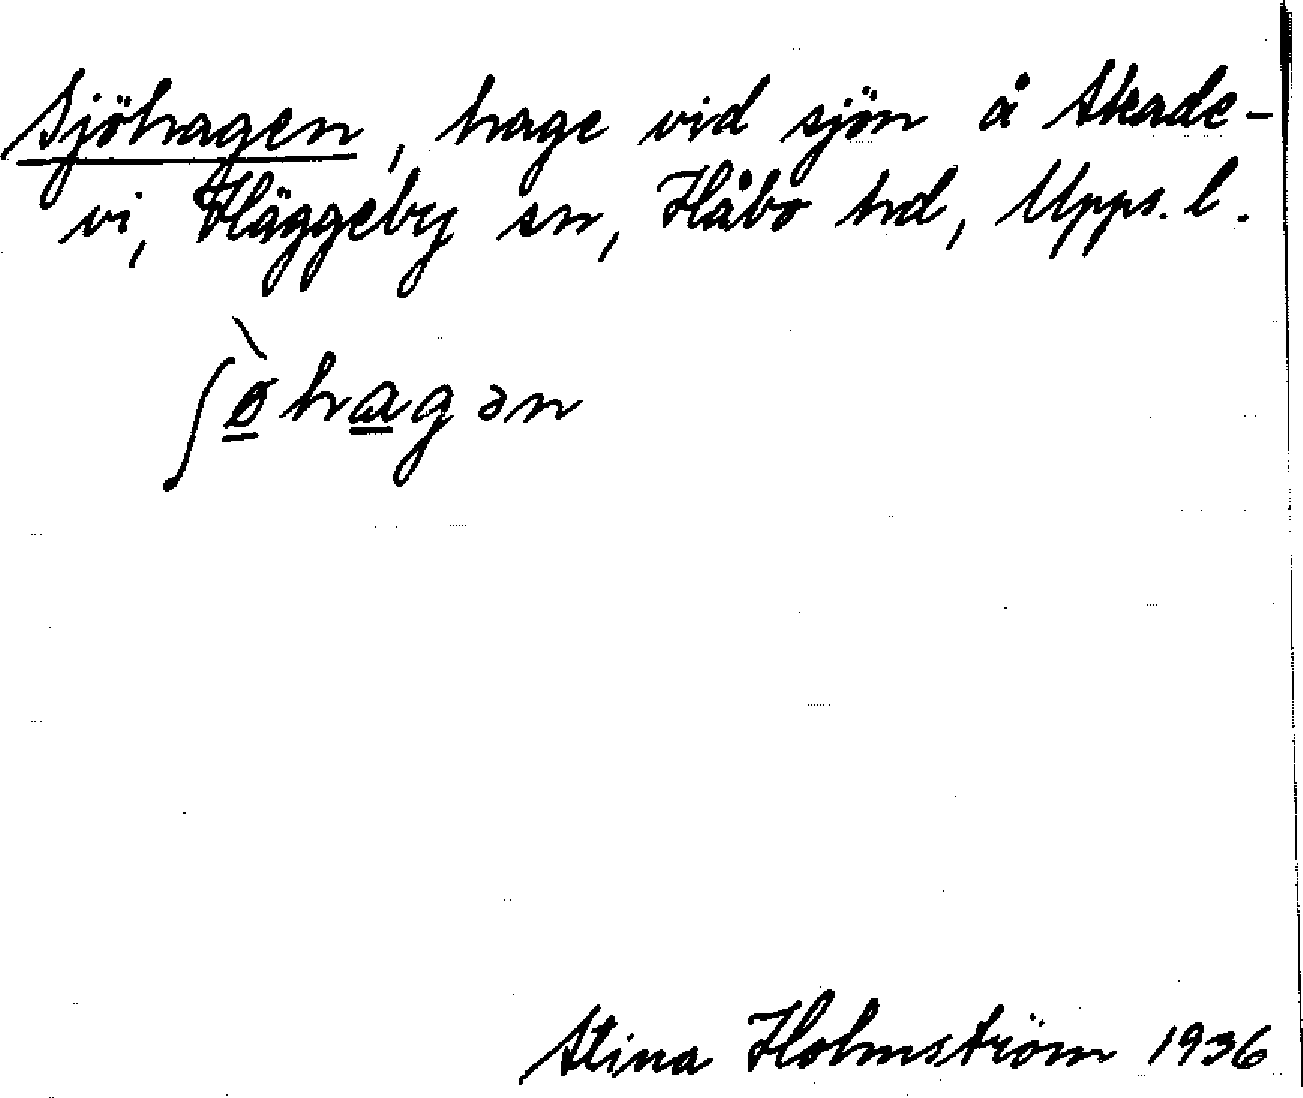 Sjöhagen, hage vid sjön å Skade-
vi, Häggeby sn, Håbo hd, Upps. l.
ʃø̲̀ha̲gən
Stina Holmström 1936